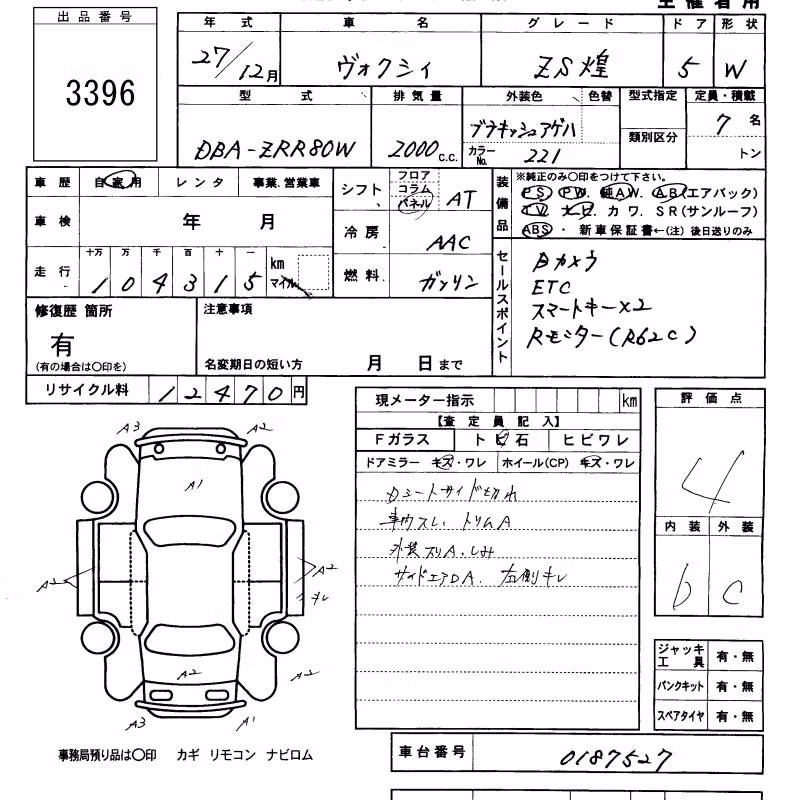 主催者用
出品番号
3396
年式 車名 グレード ドア 形状
27/12月 ヴォクシィ ZS煌 5 W
型式 排気量 外装色 色替 型式指定 定員・積載
DBA-ZRR80W 2000c.c. ブラキッシュアゲハ 類別区分 7名
カラーNo. 221 トン
車歴 自家用 レンタ 事業.営業車
シフト フロア コラム パネル AT
車検 年 月
冷房 AAC
走行 十万 万 千 百 十 一 km マイル
1 0 4 3 1 5
燃料 ガソリン
装備品
※純正のみ〇印をつけて下さい。
PS PW. 純AW. A.B(エアバック)
TV. ナビ. カワ. SR(サンルーフ)
ABS・ 新車保証書←(注)後日送りのみ
セールスポイント
Bカメラ
ETC
スマートキー×2
Rモニター(R62C)
修復歴 箇所 注意事項
有
(有の場合は〇印を) 名変期日の短い方 月 日まで
リサイクル料 12470円
現メーター指示 km
【査定員記入】
Fガラス トビ石 ヒビワレ
ドアミラー キズ・ワレ ホイール(CP) キズ・ワレ
Dシートサイド切れ
車内スレ、トリムA
外装スリA.しみ
サイドエアDA. 左側キレ
評価点
4
内装 外装
b c
ジャッキ工具 有・無
パンクキット 有・無
スペアタイヤ 有・無
A3 A2
A1
A2 A2
キレ
A2 A2
A3 A1
事務局預り品は〇印 カギ リモコン ナビロム
車台番号 0187527